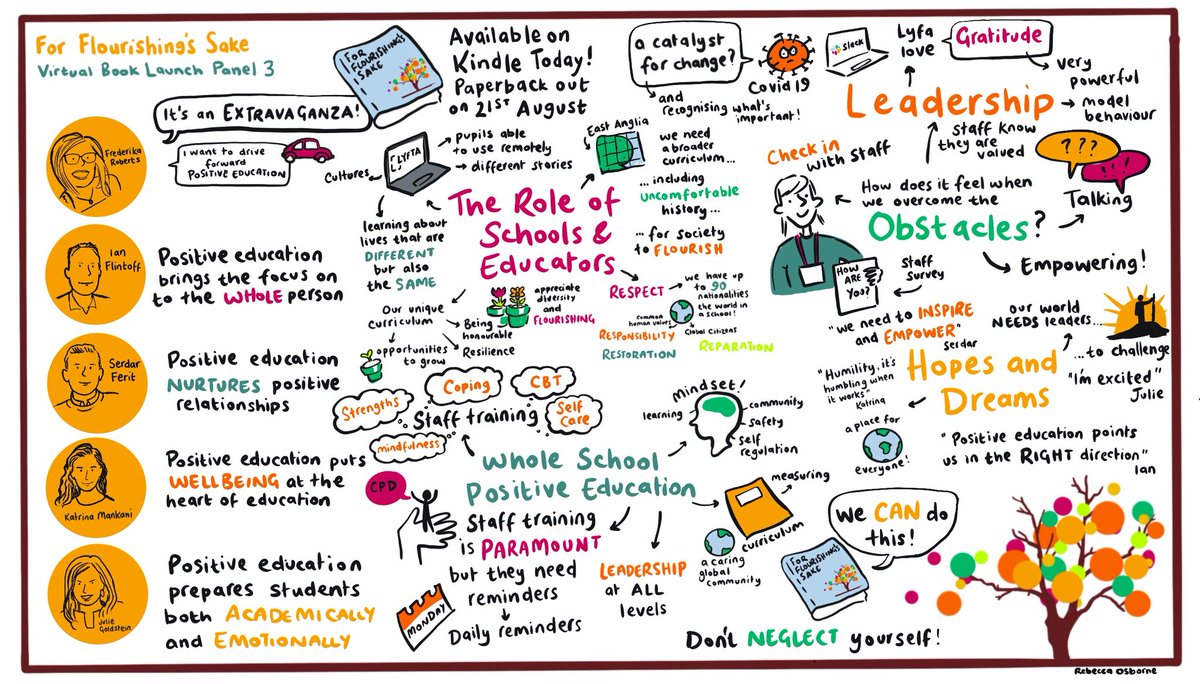 For Flourishing's Sake
Virtual Book Launch Panel 3
It's an EXTRAVAGANZA!
I want to drive
forward
POSITIVE EDUCATION
Frederika
Roberts
Ian
Flintoff
Positive education
brings the focus on
to the WHOLE person
Serdar
Ferit
Positive education
NURTURES positive
relationships
Katrina Mankani
Positive education puts
WELLBEING at the
heart of education
Julie
Goldstein
Positive education
prepares students
both ACADEMICALLY
and EMOTIONALLY
FOR
FLOURISHING'S
SAKE
Available on
Kindle Today!
Paperback out
on 21ST August
LYFTA
Cultures
pupils able
to use remotely
different stories
learning about
lives that are
DIFFERENT
but also
the SAME
The Role of
Schools &
Educators
Our unique
curriculum
opportunities
to grow
Being
honourable
Resilience
appreciate
diversity
and
FLOURISHING
a catalyst
for change?
Covid 19
and
recognising what's
important!
East Anglia
we need
a broader
curriculum...
...including
uncomfortable
history...
...for society
to FLOURISH
RESPECT
we have up
to 90
nationalities
the world in
a school!
Common
human values
Global Citizens
RESPONSIBILITY
RESTORATION
REPARATION
Slack
Lyfa
love
Gratitude
very
powerful
model
behaviour
Leadership
staff know
they are
valued
Check in
with staff
???
!!!
Talking
How does it feel when
we overcome the
Obstacles?
Empowering!
HOW
ARE
YOU?
Staff
survey
"we need to INSPIRE
and EMPOWER"
Serdar
our world
NEEDS leaders...
...to challenge
"I'm excited"
Julie
Hopes and
Dreams
"Humility, it's
humbling when
it works"
Katrina
a place for
everyone!
"Positive education points
us in the RIGHT direction"
Ian
Strengths
Coping
CBT
Self
Care
mindfulness
Staff training
Whole School
Positive Education
Mindset!
learning
community
safety
self
regulation
CPD
Staff training
is PARAMOUNT
but they need
reminders
Daily reminders
MONDAY
LEADERSHIP
at ALL
levels
measuring
curriculum
a caring
global
community
We CAN do
this!
FOR
FLOURISHING'S
SAKE
Don't NEGLECT yourself!
Rebecca Osborne